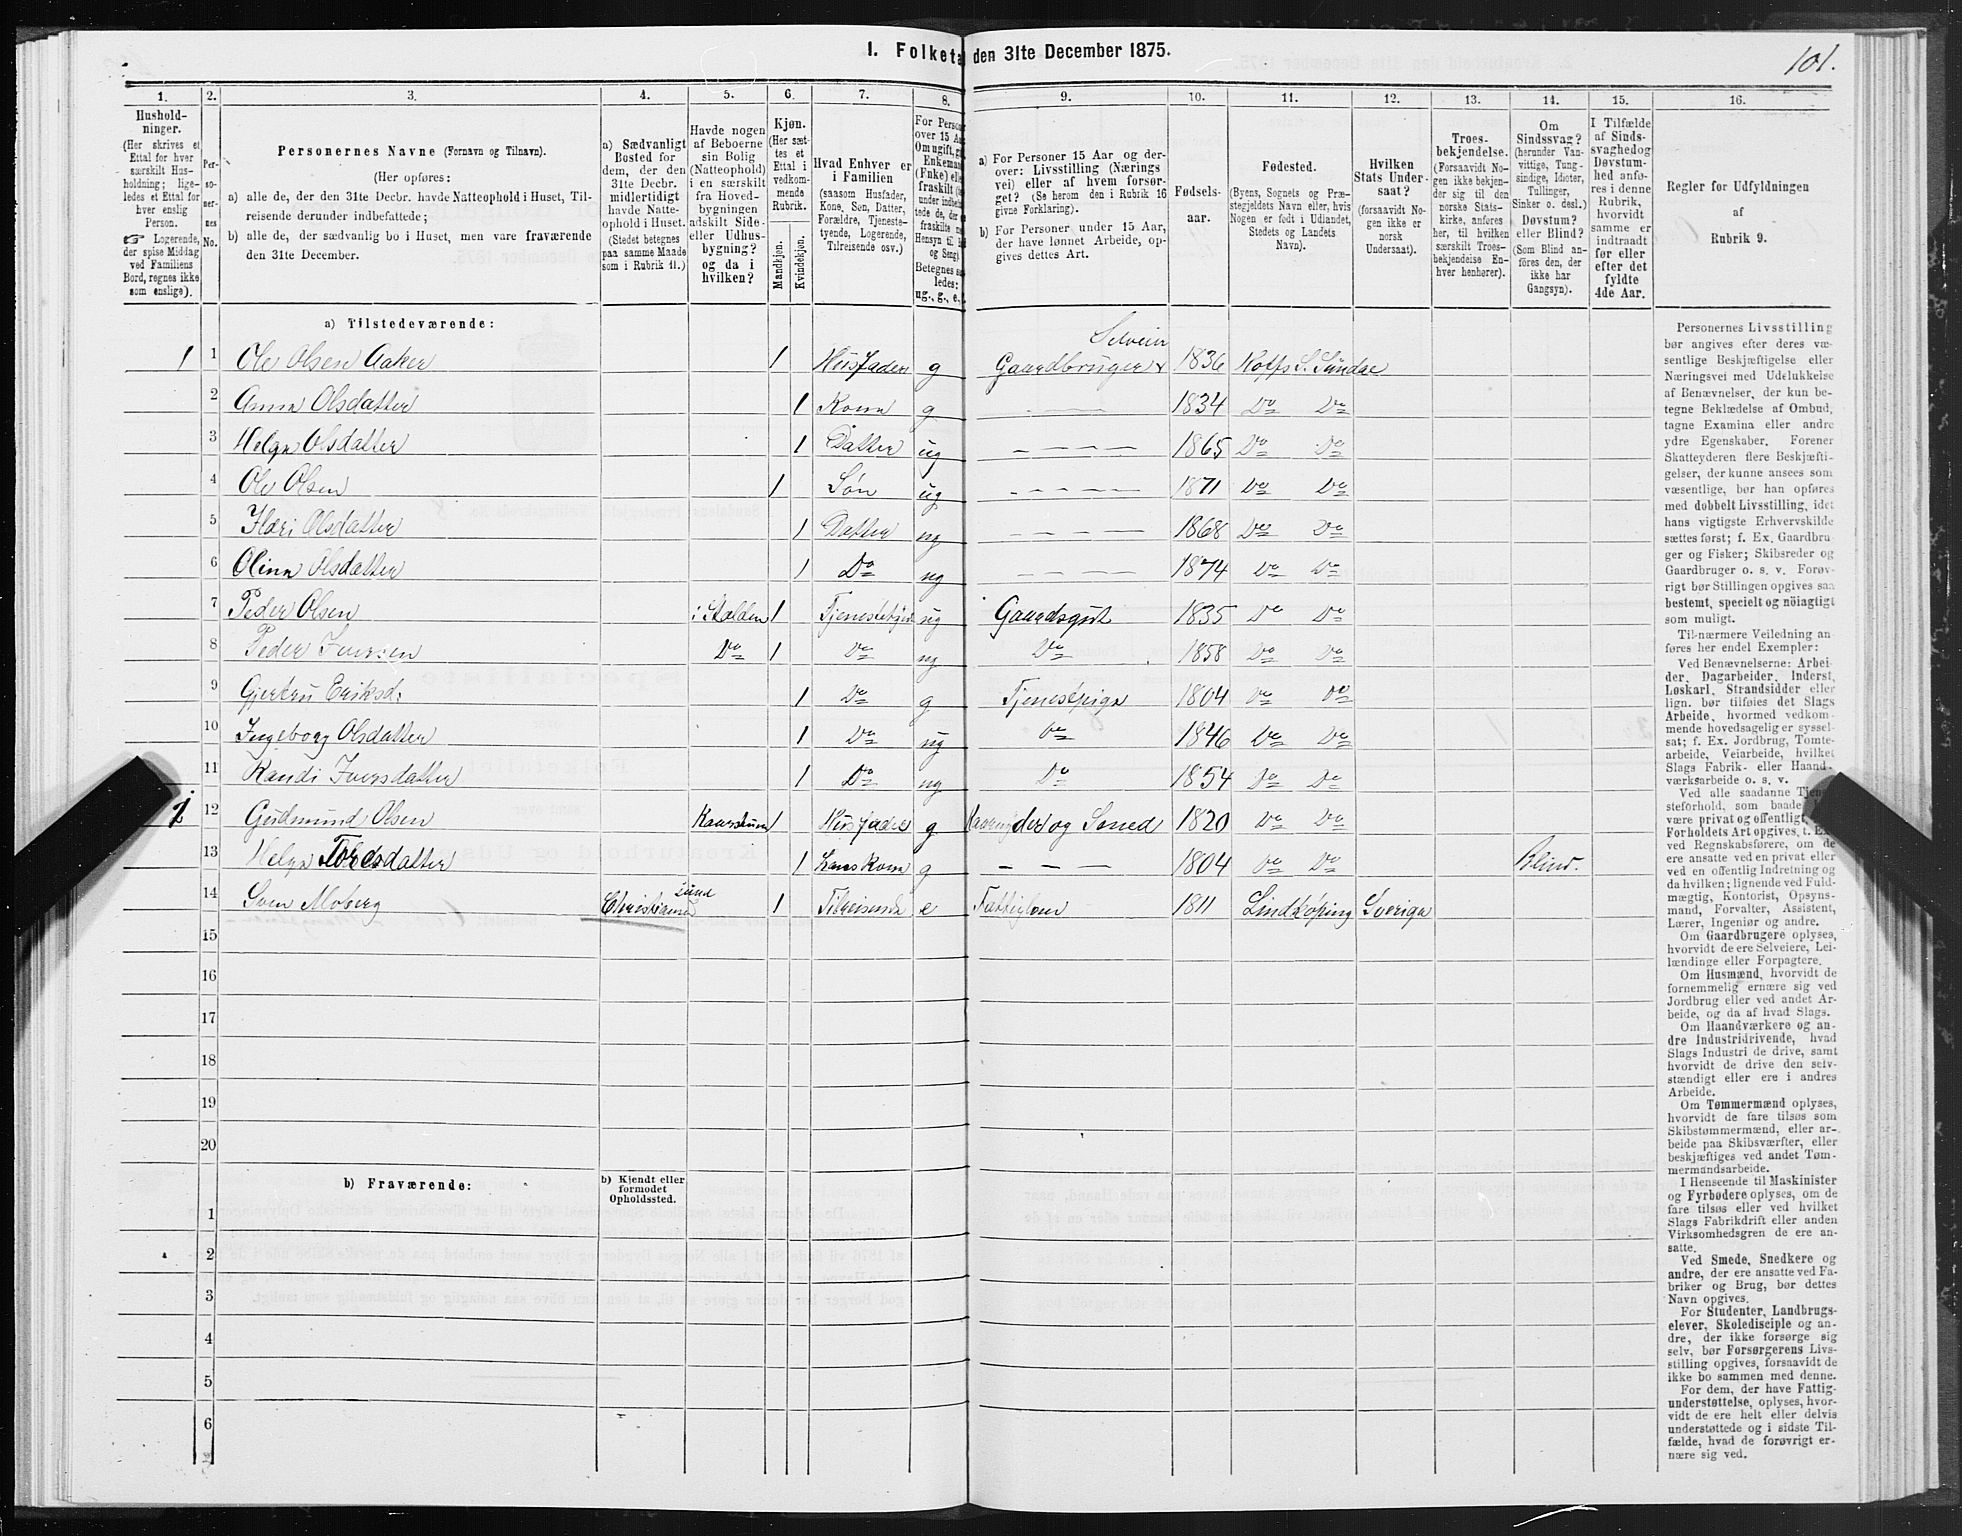 I. Folketa den 31te December 1875.
101.
1. 2. 3. 4. 5. 6. 7. 8. 9. 10. 11. 12. 13. 14. 15. 16.
Hushold-
ninger.
(Her skrives et
Ettal for hver
særskilt Hus-
holdning; lige-
ledes et Ettal for
hver enslig
Person.
☞ Logerende,
der spise Middag
ved Familiens
Bord, regnes ikke
som enslige).
Per-
so-
ner-
nes
No.
Personernes Navne (Fornavn og Tilnavn).
(Her opføres:
a) alle de, der den 31te Decbr. havde Natteophold i Huset, Til-
reisende derunder indbefattede;
b) alle de, der sædvanlig bo i Huset, men vare fraværende
den 31te December.
a) Sædvanligt
Bosted for
dem, der den
31te Decbr.
midlertidigt
havde Natte-
ophold i Huset.
(Stedet betegnes
paa samme Maade
som i Rubrik 11.)
Havde nogen
af Beboerne
sin Bolig
(Natteophold)
i en særskilt
fra Hoved-
bygningen
adskilt Side-
eller Udhus-
bygning?
og da i
hvilken?
Kjøn.
(Her sæt-
tes et
Ettal i
vedkom-
mende
Rubrik.
Mandkjøn.
Kvindekjøn.
Hvad Enhver er
i Familien
(saasom Husfader,
Kone, Søn, Datter,
Forældre, Tjeneste-
tyende, Logerende,
Tilreisende osv.)
For Person
over 15 Aa
Om ugift, g
Enkeman
(Enke) elle
fraskilt
Betegnes s
ledes:
ug., g., e.,
a) For Personer 15 Aar og der-
over: Livsstilling (Nærings
vei) eller af hvem forsør-
get? (Se herom den i Rubrik 16
givne Forklaring).
b) For Personer under 15 Aar,
der have lønnet Arbeide, op-
gives dettes Art.
Fødsels-
aar.
Fødested.
(Byens, Sognets og Præ-
stegjeldets Navn eller, hvis
Nogen er født i Udlandet,
Stedets og Landets
Navn).
Hvilken
Stats Under-
saat?
(forsaavidt No-
gen ikke er
norsk
Undersaat).
Troes-
bekjendelse.
(Forsaavidt No-
gen ikke bekjen-
der sig til den
norske Stats-
kirke, anføres
her, til hvilken
særskilt Troes-
bekjendelse En-
hver henhører).
Om
Sindssvag?
(herunder Van-
vittige, Tung-
sindige, Idioter,
Tullinger,
Sinker o. desl.)
Døvstum?
eller Blind?
(Som Blind an-
føres den, der
ikke har
Gangsyn).
I Tilfælde
af Sinds-
svaghed og
Døvstum-
hed anfø-
res i denne
Rubrik,
hvorvidt
samme er
indtraadt
før eller
efter det
fyldte
4de Aar.
Regler for Udfyldningen
af
Rubrik 9.
a) Tilstedeværende:
Selveier
1 1 Ole Olsen Aaker 1 Husfader g Gaardbruger 1836 Romfo S. Sundae
2 Anna Olsdatter 1 Kona g 1834 Do Do
3 Helga Olsdatter 1 Datter ug 1865 Do Do
4 Ole Olsen 1 Søn ug 1871 Do Do
5 Olsdatter 1 Datter ug 1868 Do Do
6 Olina Olsdatter 1 Do ug 1874 Do Do
7 Peder Olsen i Stalden 1 ug Gaardsgut 1835 Do Do
8 Peder Iversen Do 1 Do ug Do 1858 Do Do
9 Gjertru Eriksd. 1 Do g Tjenestpiga 1804 Do Do
10 Ingeborg Olsdatter 1 Do ug Do 1846 Do Do
11 Randi Iversdatter 1 Do ug Do 1854 Do Do
12 Gudmund Olsen 1 Husfader g og Smed 1820 Do Do
13 Helga Toresdatter 1 Hans Kona g 1804 Do Do Blind.
14 Sven Moberg Christiansund 1 Tilreisende e Fattiglem 1811 Lindkøping Sveriga
15
16
17
18
19
20
b) Fraværende:
b) Kjendt eller
formodet
Opholdssted.
1
2
3
4
5
6
Personernes Livsstilling
bør angives efter deres væ-
sentlige Beskjæftigelse eller
Næringsvei med Udelukkelse
af Benævnelser, der kun be-
tegne Beklædelse af Ombud,
tagne Examina eller andre
ydre Egenskaber. Forener
Skatteyderen flere Beskjæfti-
gelser, der kunne ansees som
væsentlige, bør han opføres
med dobbelt Livsstilling, idet
hans vigtigste Erhvervskilde
sættes først; f. Ex. Gaardbru-
ger og Fisker; Skibsreder og
Gaardbruger o. s. v. Forøv-
rigt bør Stillingen opgives saa
bestemt, specielt og nöiagtigt
som muligt.
Til nærmere Veiledning an-
føres her endel Exempler:
Ved Benævnelserne: Arbei-
der, Dagarbeider, Inderst,
Løskarl, Strandsidder eller
lign. bør tilføies det Slags
Arbeide, hvormed vedkom-
mende hovedsagelig er syssel-
sat; f. Ex. Jordbrug, Tomte-
arbeide, Veiarbeide, hvilket
Slags Fabrik- eller Haand-
værksarbeide o. s. v.
Ved alle saadanne Tjene-
steforhold, som baade
være privat og offentligt,
Forholdets Art opgives, t. Ex.
ved Regnskabsførere, om de
ere ansatte ved en privat eller
ved en offentlig Indretning og
da hvilken; lignende ved Fuld-
mægtig, Kontorist, Opsyns-
mand, Forvalter, Assistent,
Lærer, Ingeniør og andre.
Om Gaardbrugere oplyses,
hvorvidt de ere Selveiere, Lei-
lændinge eller Forpagtere.
Om Husmænd, hvorvidt de
fornemmelig ernære sig ved
Jordbrug eller ved andet Ar-
beide, og da af hvad Slags.
Om Haandværkere og an-
dre Industridrivende, hvad
Slags Industri de drive, samt
hvorvidt de drive den selv-
stændigt eller ere i andres
Arbeide.
Om Tømmermænd oplyses,
hvorvidt de fare tilsøs som
Skibstømmermænd, eller ar-
beide paa Skibsværfter, eller
beskjæftiges ved andet Tøm-
mermandsarbeide.
I Henseende til Maskinister
og Fyrbødere oplyses, om de
fare tilsøs eller ved hvilket
Slags Fabrikdrift eller anden
Virksomhedsgren de ere an-
satte.
Ved Smede, Snedkere og
andre, der ere ansatte ved Fa-
briker og Brug, bør dettes
Navn opgives.
For Studenter, Landbrugs-
elever, Skoledisciple og an-
dre, der ikke forsørge sig
selv, bør Forsørgerens Livs-
stilling opgives, forsaavidt de
ikke bo sammen med denne.
For dem, der have Fattig-
understøttelse, oplyses, hvor-
vidt de ere helt eller delvis
understøttede og i sidste Til-
fælde, hvad de forøvrigt er-
nære sig ved.